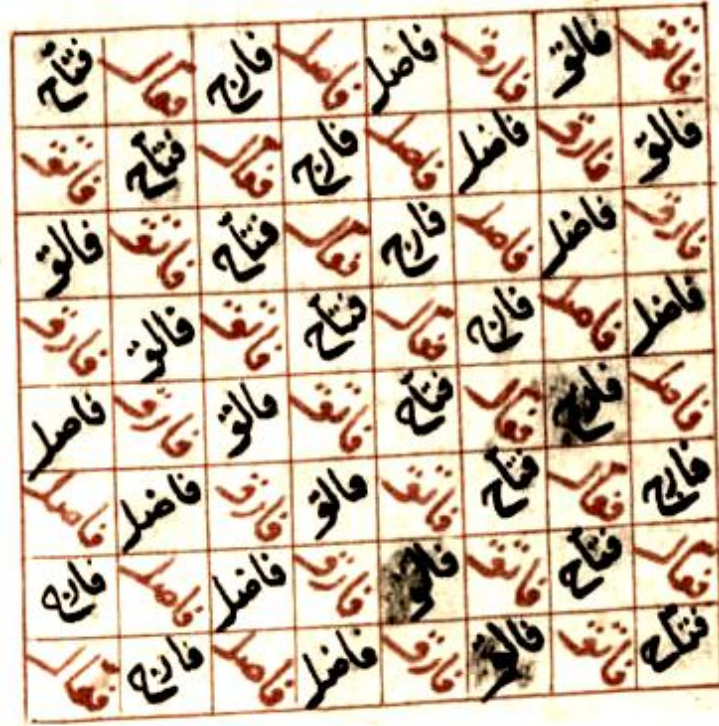 فاتق فالق فارق فاصل فاصل فارج فعال فتاح
فالق فارق فاضل فاصل فارج فعال فتاح فاتق
فارق فاضل فاصل فارج فعال فتاح فاتق فالق
فاضل فاصل فارج فعال فتاح فاتق فالق فارق
فاصل فارج فعال فتاح فاتق فالق فارق فاصل
فارج فعال فتاح فاتق فالق فارق فاضل فاصل
فعال فتاح فاتق فالق فارق فاضل فاصل فارج
فتاح فاتق فالق فارق فاضل فاصل فارج فعال